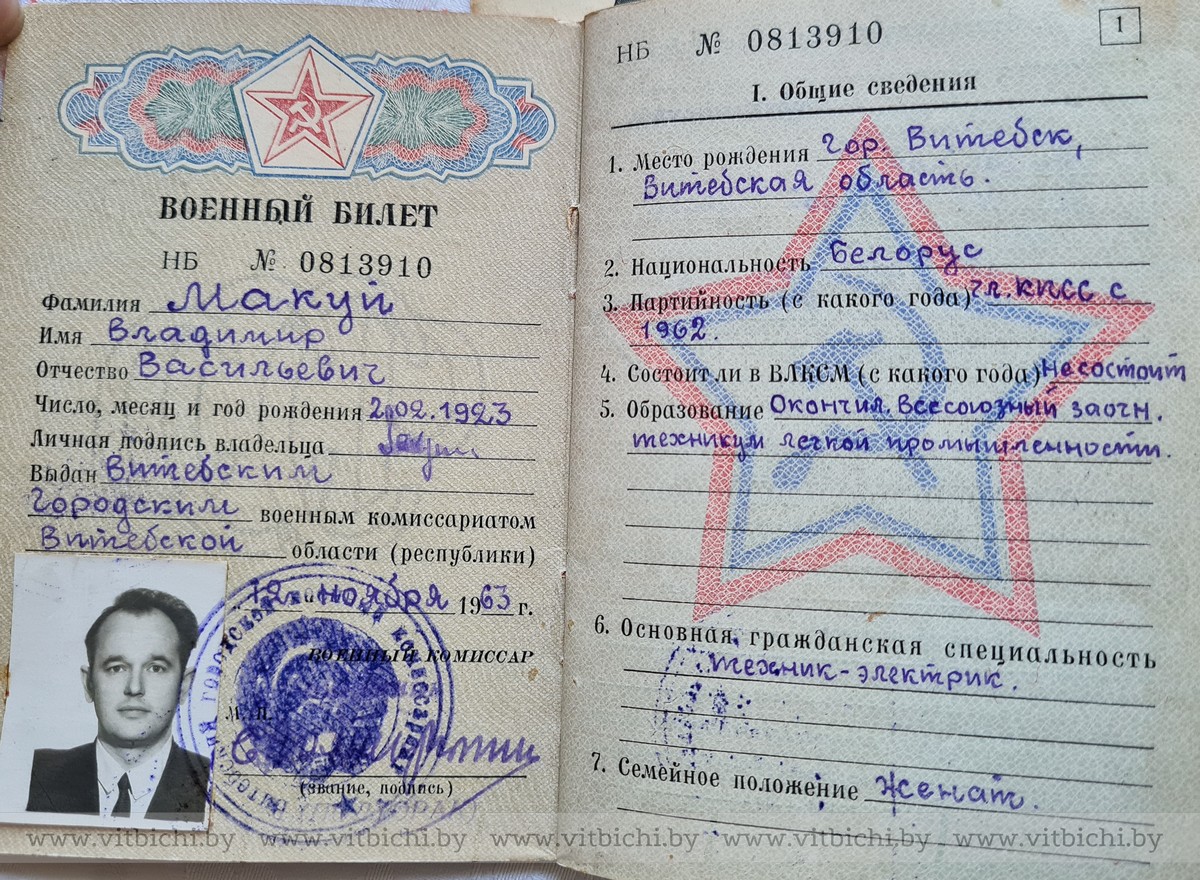 ВОЕННЫЙ БИЛЕТ
НБ № 0813910
Фамилия Макуй
Имя Владимир
Отчество Васильевич
Число, месяц и год рождения 2.02.1923
Личная подпись владельца
Выдан Витебским
Городским военным комиссариатом
Витебской области (республики)
12 ноября 1963 г.
ВОЕННЫЙ КОМИССАР
М. П.
(звание, подпись)
НБ № 0813910
1
I. Общие сведения
1. Место рождения Гор Витебск,
Витебская область.
2. Национальность Белорус
3. Партийность (с какого года) Чл. КПСС с
1962.
4. Состоит ли в ВЛКСМ (с какого года) Не состоит
5. Образование Окончил. Всесоюзный заочн.
техникум легкой промышленности.
6. Основная гражданская специальность
техник-электрик.
7. Семейное положение Женат.
www.vitbichi.by www.vitbichi.by www.vitbichi.by www.vitbichi.by www.vitbichi.by